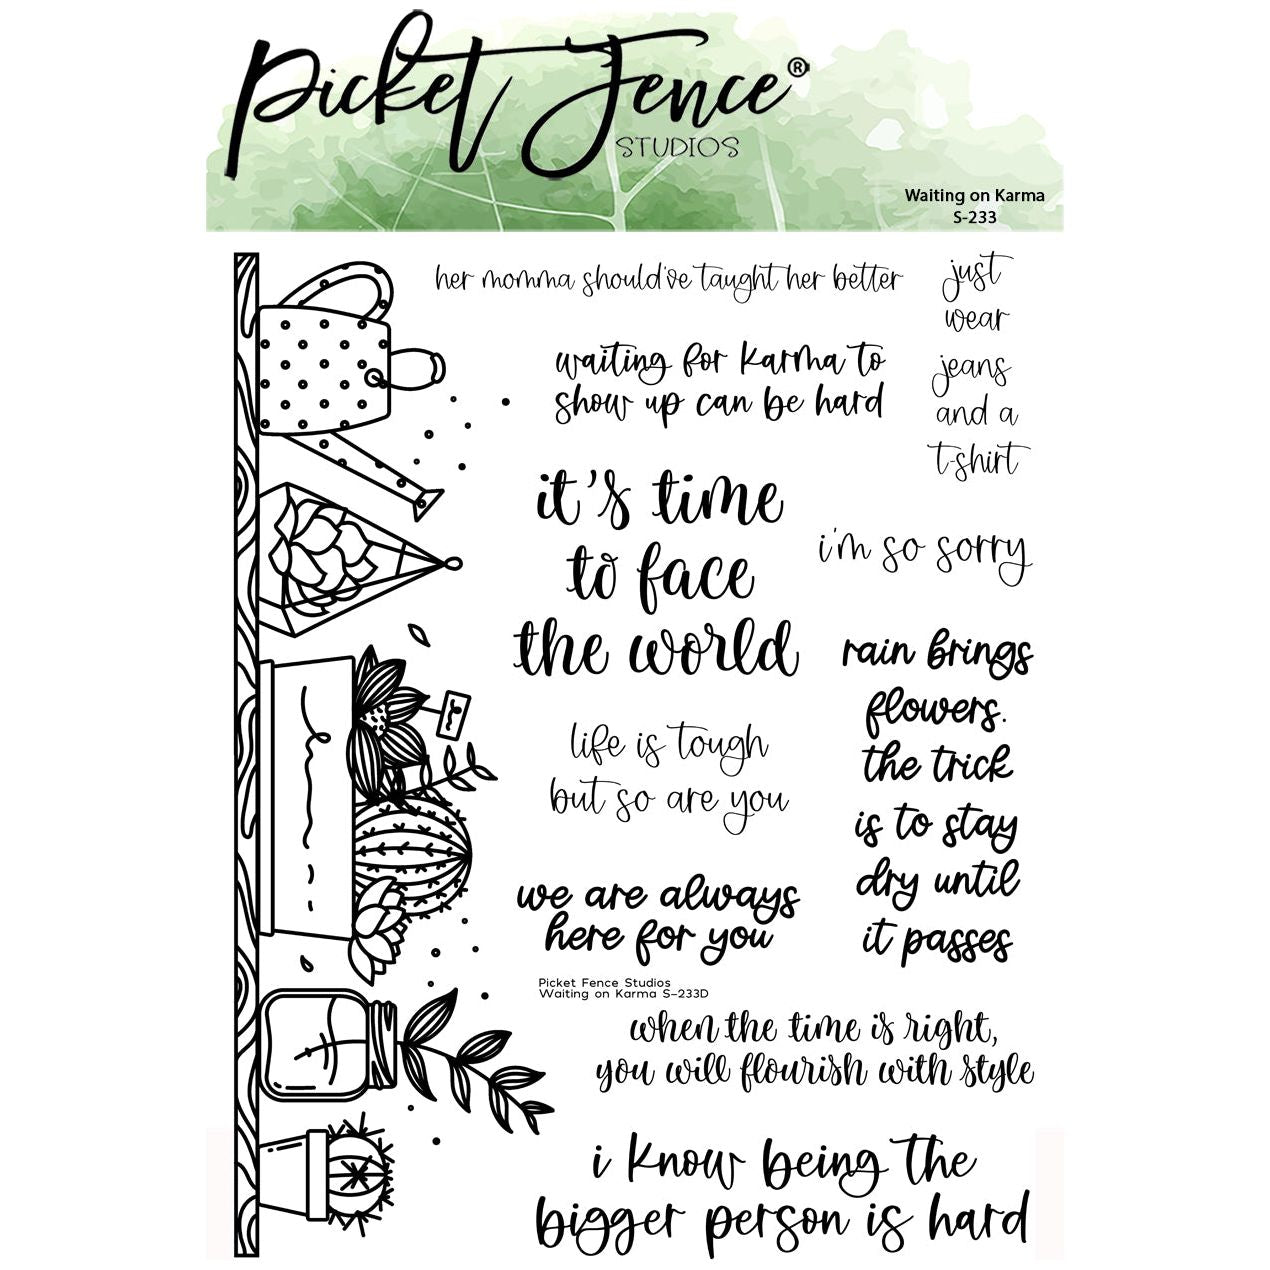 Picket Fence®
STUDIOS
Waiting on Karma
S-233
her momma should've taught her better
just
wear
jeans
and a
t-shirt
waiting for karma to
show up can be hard
it's time
to face
the world
i'm so sorry
rain brings
flowers.
the trick
is to stay
dry until
it passes
life is tough
but so are you
we are always
here for you
Picket Fence Studios
Waiting on Karma S-233D
when the time is right,
you will flourish with style
i know being the
bigger person is hard